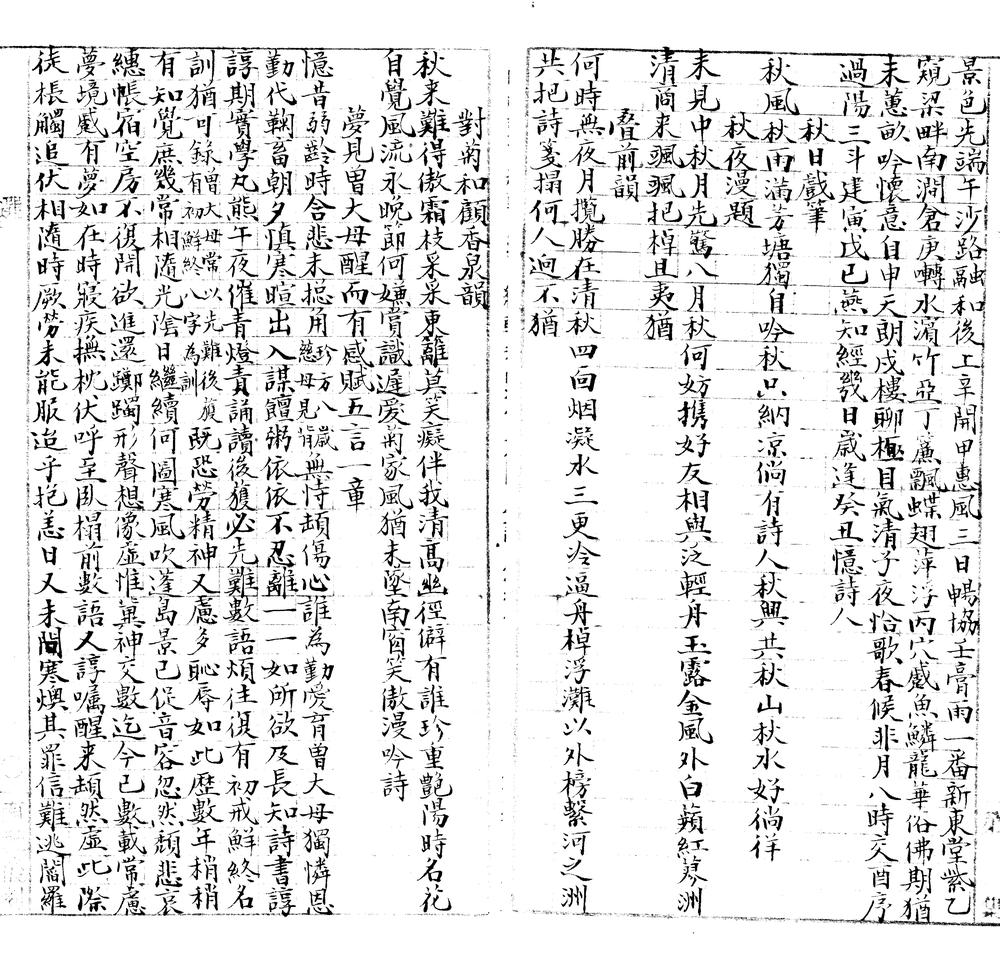 景色先端午沙路融和後上辛開甲惠風三日暢協壬膏雨一番新東堂紫乙
窺梁畔南澗倉庚囀水湄竹亞丁簾飄蝶翅萍浮丙穴感魚鱗龍華俗佛期猶
未蕙畝吟懷意自申天朗戍樓聊極目氣清子夜恰歌春候非月八時交酉序
過陽三斗建寅戊已燕知經幾日歲逢癸丑憶詩人
秋日戲筆
秋風秋雨滿芳塘獨自吟秋只納凉倘有詩人秋興共秋山秋水好倘佯
秋夜漫題
未見中秋月先驚八月秋何妨携好友相與泛輕舟玉露金風外白蘋紅蓼洲
清商来颯颯把棹且夷猶
疊前韻
何時無夜月攬勝在清秋四面烟凝水三更冷逼舟棹浮灘以外榜繫河之洲
共把詩箋搨何人逈不猶
對菊和顧香泉韻
秋来難得傲霜枝采采東籬莫笑癡伴我清高幽徑僻有誰珍重艷陽時名花
自覺風流永晚節何嫌賞識遲愛菊家風猶未墜南窗笑傲漫吟詩
夢見曾大母醒而有感賦五言一章
憶昔弱齡時含悲未搃角珍方八歲慈母見背無恃頡傷心誰為勤愛育曾大母獨憐恩
勤代鞠畜朝夕慎寒暄出入謀饘粥依依不忍離一一如所欲及長知詩書諄
諄期實學丸熊午夜催青燈責誦讀後獲必先難數語煩往復有初戒鮮終名
訓猶可錄曾大母常以先難後獲有初鮮終八字為訓既恐勞精神又慮多恥辱如此歷數年稍稍
有知覺庶幾常相隨光陰日繼續何圖寒風吹蓬島景已促音容忽然頹悲哀
繐帳宿空房不復開欲進還躑躅形聲想像虛惟冀神交數迄今已數載常慮
夢境慼有夢如在時寢疾撫枕伏呼至臥榻前數語又諄囑醒来頡然虛此際
徒棖觸追伏相隨時厥勞未能服迨乎抱恙日又未問寒燠其罪信難逃閻羅